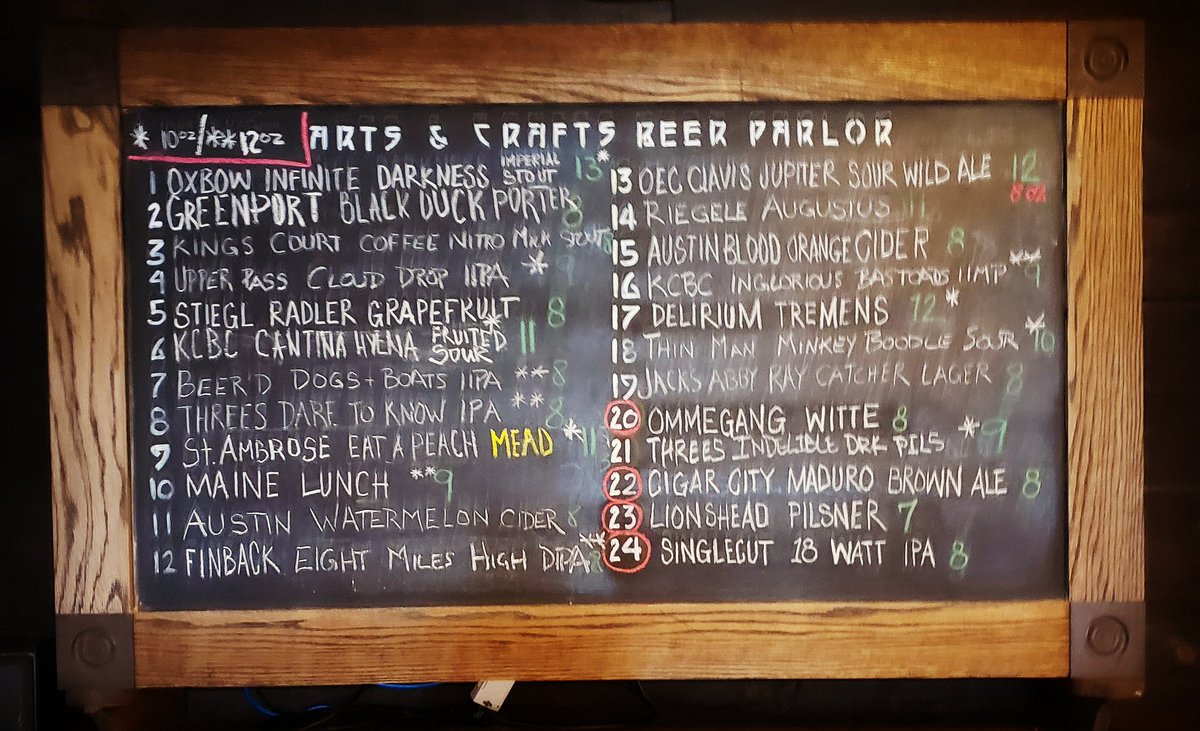 * 10oz/**12oz ARTS & CRAFTS BEER PARLOR
1 OXBOW INFINITE DARKNESS IMPERIAL STOUT 13*
2 GREENPORT BLACK DUCK PORTER 8
3 KINGS COURT COFFEE NITRO MILK STOUT 8
4 UPPER PASS CLOUD DROP IIPA * 9
5 STIEGL RADLER GRAPEFRUIT 8
6 KCBC CANTINA HYENA FRUITED SOUR * 11
7 BEER'D DOGS + BOATS IIPA ** 8
8 THREES DARE TO KNOW IPA ** 8
9 St. AMBROSE EAT A PEACH MEAD * 11
10 MAINE LUNCH ** 9
11 AUSTIN WATERMELON CIDER 8
12 FINBACK EIGHT MILES HIGH DIPA ** 8
13 OEC CLAVIS JUPITER SOUR WILD ALE 12
8 oz
14 RIEGELE AUGUSTUS 11
15 AUSTIN BLOOD ORANGE CIDER 8
16 KCBC INGLORIOUS BASTOADS IIMP ** 9
17 DELIRIUM TREMENS 12 *
18 THIN MAN MINKEY BOODLE SOUR * 10
19 JACKS ABBY RAY CATCHER LAGER 8
20 OMMEGANG WITTE 8
21 THREES INDELIBLE DRK PILS * 9
22 CIGAR CITY MADURO BROWN ALE 8
23 LIONSHEAD PILSNER 7
24 SINGLECUT 18 WATT IPA 8